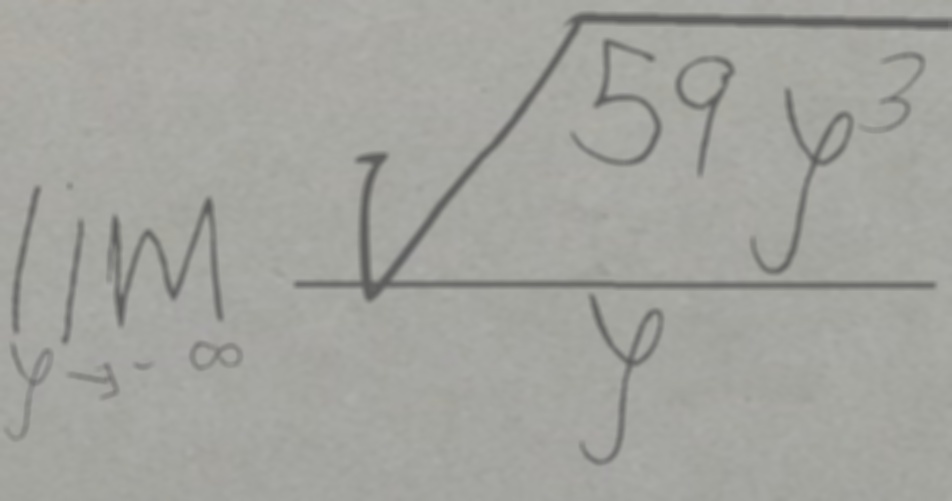 \lim_{y \to -\infty} \frac{\sqrt{59y^3}}{y}